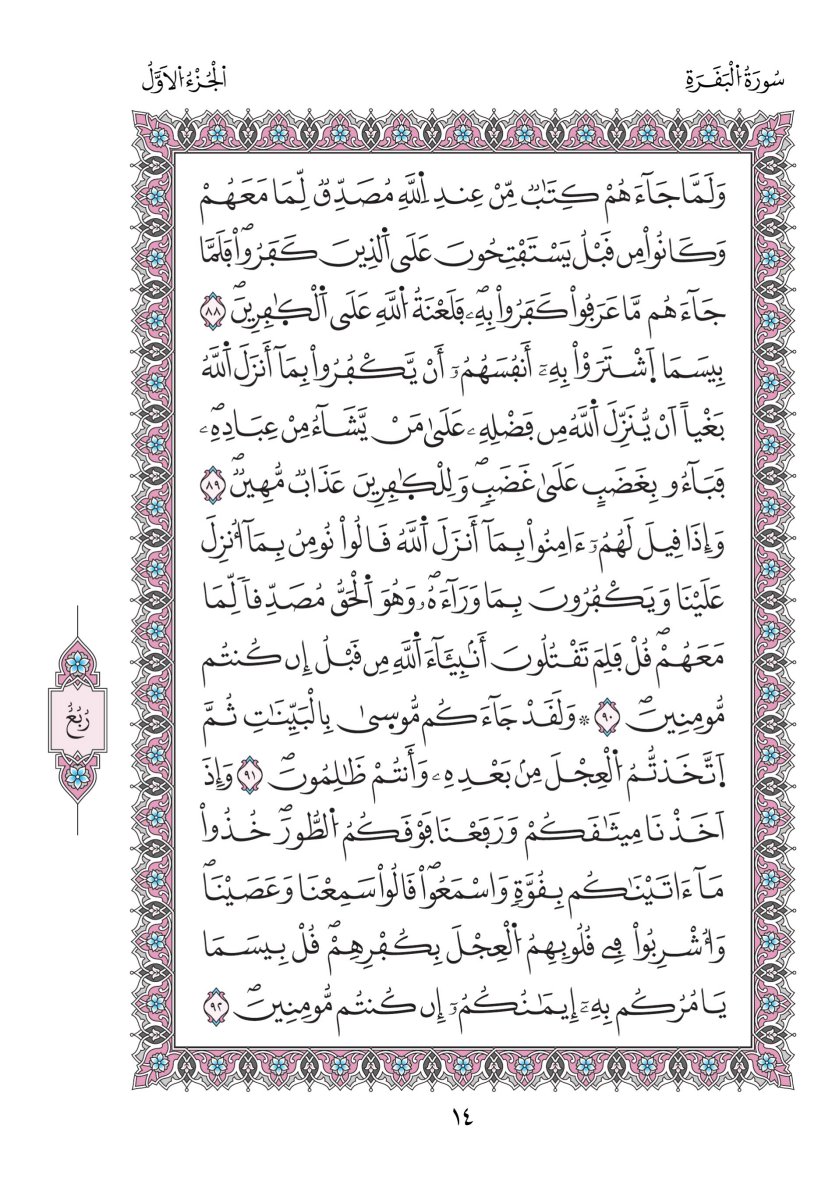 سُورَةُ اُ۬لْبَقَرَةِ
اَ۬لْجُزْءُ اُ۬لَاوَّلُ
وَلَمَّا جَآءَهُمْ كِتَٰبٞ مِّنْ عِندِ اِ۬للَّهِ مُصَدِّقٞ لِّمَا مَعَهُمْ
وَكَانُواْ مِن قَبْلُ يَسْتَفْتِحُونَ عَلَي اَ۬لذِينَ كَفَرُواْۖ فَلَمَّا
جَآءَهُم مَّا عَرَفُواْ كَفَرُواْ بِهِۦۖ فَلَعْنَةُ اُ۬للَّهِ عَلَي اَ۬لْكٰ۪فِرِينَۖ ٨٨
بِيسَمَا اَ۪شْتَرَوْاْ بِهِۦٓ أَنفُسَهُمُۥٓ أَنْ يَّكْفُرُواْ بِمَآ أَنزَلَ اَ۬للَّهُ
بَغْياً اَنْ يُّنَزِّلَ اَ۬للَّهُ مِن فَضْلِهِۦ عَلَيٰ مَنْ يَّشَآءُ مِنْ عِبَادِهِۦۖ
فَبَآءُو بِغَضَبٍ عَلَيٰ غَضَبٖۖ وَلِلْكٰ۪فِرِينَ عَذَابٞ مُّهِينٞۖ ٨٩
وَإِذَا قِيلَ لَهُمُۥٓ ءَامِنُواْ بِمَآ أَنزَلَ اَ۬للَّهُ قَالُواْ نُومِنُ بِمَآ أُنزِلَ
عَلَيْنَا وَيَكْفُرُونَ بِمَا وَرَآءَهُۥۖ وَهُوَ اَ۬لْحَقُّ مُصَدِّقاٗ لِّمَا
مَعَهُمْۖ قُلْ فَلِمَ تَقْتُلُونَ أَنۢبِئَآءَ اَ۬للَّهِ مِن قَبْلُ إِن كُنتُم
مُّومِنِينَۖ ٩٠ ۞ وَلَقَدْ جَآءَكُم مُّوس۪يٰ بِالْبَيِّنَٰتِ ثُمَّ
اَ۪تَّخَذتُّمُ اُ۬لْعِجْلَ مِنۢ بَعْدِهِۦ وَأَنتُمْ ظَٰلِمُونَۖ ٩١ وَإِذَ
اَخَذْنَا مِيثَٰقَكُمْ وَرَفَعْنَا فَوْقَكُمُ اُ۬لطُّورَۖ خُذُواْ
مَآ ءَاتَيْنَٰكُم بِقُوَّةٖ وَاسْمَعُواْۖ قَالُواْ سَمِعْنَا وَعَصَيْنَاۖ
وَأُشْرِبُواْ فِے قُلُوبِهِمُ اُ۬لْعِجْلَ بِكُفْرِهِمْۖ قُلْ بِيسَمَا
يَامُرُكُم بِهِۦٓ إِيمَٰنُكُمُۥٓ إِن كُنتُم مُّومِنِينَۖ ٩٢
رُبُعُ
١٤